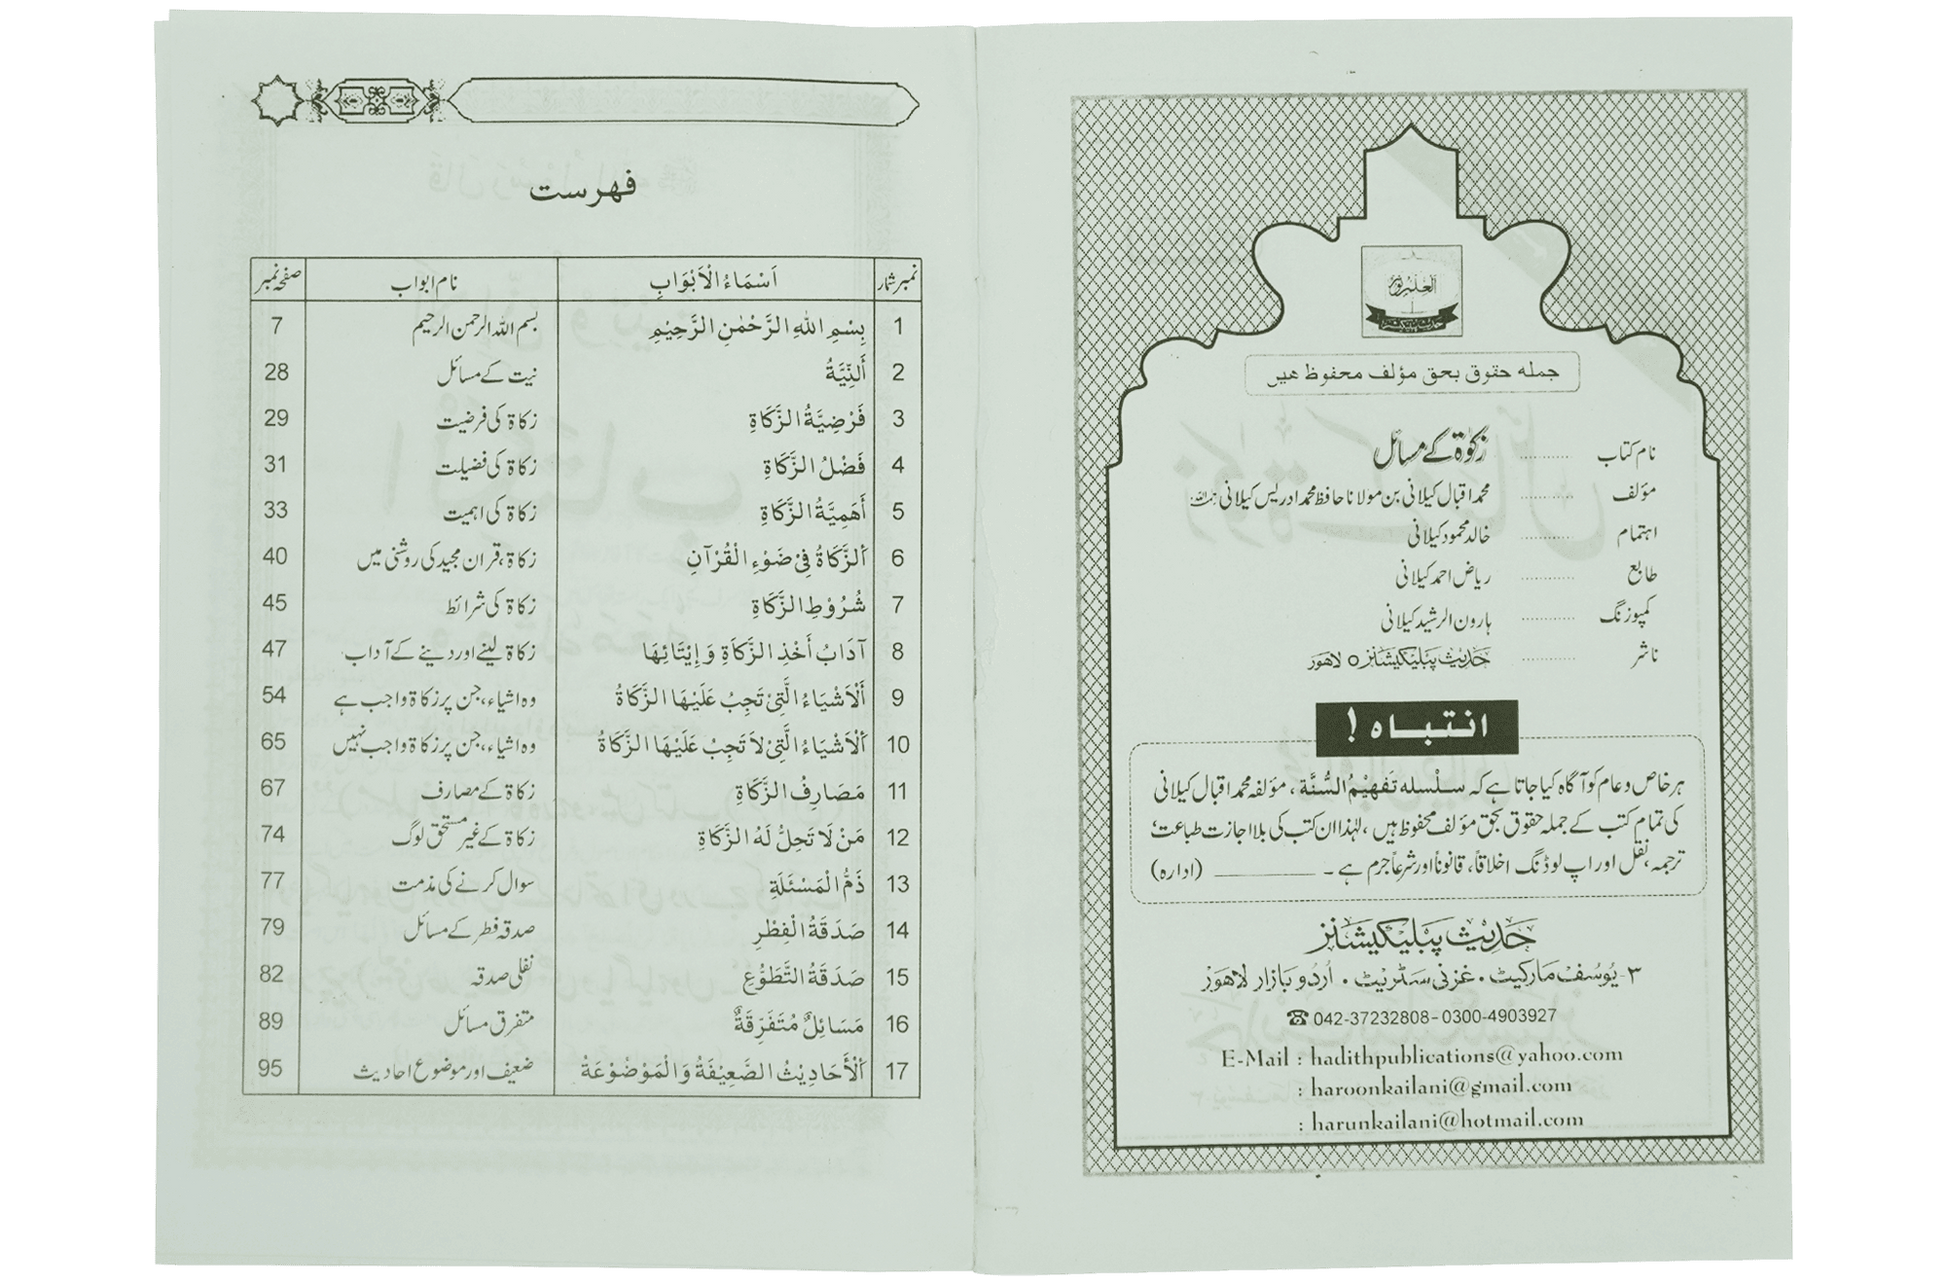 العلم نور
حدیث پبلیکیشنز
جملہ حقوق بحق مؤلف محفوظ ھیں
نام کتاب ........... زکوٰۃ کے مسائل
مؤلف ........... محمد اقبال کیلانی بن مولانا حافظ محمد ادریس کیلانی رحمہ اللہ
اہتمام ........... خالد محمود کیلانی
طابع ........... ریاض احمد کیلانی
کمپوزنگ ........... ہارون الرشید کیلانی
ناشر ........... حدیث پبلیکیشنز ○ لاہور
انتباہ !
ہر خاص و عام کو آگاہ کیا جاتا ہے کہ سلسلہ تَفہیمُ السُّنَّة ، مؤلفہ محمد اقبال کیلانی
کی تمام کتب کے جملہ حقوق بحق مؤلف محفوظ ہیں ، لہٰذا ان کتب کی بلا اجازت طباعت،
ترجمہ، نقل اور اپ لوڈنگ اخلاقاً، قانوناً اور شرعاً جرم ہے ۔ ________ (ادارہ)
حدیث پبلیکیشنز
۳- یُوسُف مارکیٹ ۰ غزنی سٹریٹ ۰ اُردو بازار لاہور
☎ 042-37232808 - 0300-4903927
E-Mail : hadithpublications@yahoo.com
: haroonkailani@gmail.com
: harunkailani@hotmail.com
فہرست
نمبر شمار اَسْمَاءُ الْاَبْوَابِ نام ابواب صفحہ نمبر
1 بِسْمِ اللهِ الرَّحْمٰنِ الرَّحِيْمِ بسم اللہ الرحمن الرحیم 7
2 أَلنِّيَّةُ نیت کے مسائل 28
3 فَرْضِيَّةُ الزَّكَاةِ زکاۃ کی فرضیت 29
4 فَضْلُ الزَّكَاةِ زکاۃ کی فضیلت 31
5 أَهَمِيَّةُ الزَّكَاةِ زکاۃ کی اہمیت 33
6 أَلزَّكَاةُ فِيْ ضَوْءِ الْقُرْآنِ زکاۃ، قرآن مجید کی روشنی میں 40
7 شُرُوْطِ الزَّكَاةِ زکاۃ کی شرائط 45
8 آدَابُ أَخْذِ الزَّكَاةِ وَ إِيْتَائِهَا زکاۃ لینے اور دینے کے آداب 47
9 أَلْاَشْيَاءُ الَّتِيْ تَجِبُ عَلَيْهَا الزَّكَاةُ وہ اشیاء، جن پر زکاۃ واجب ہے 54
10 أَلْاَشْيَاءُ الَّتِيْ لَا تَجِبُ عَلَيْهَا الزَّكَاةُ وہ اشیاء، جن پر زکاۃ واجب نہیں 65
11 مَصَارِفُ الزَّكَاةِ زکاۃ کے مصارف 67
12 مَنْ لَا تَحِلُّ لَهُ الزَّكَاةِ زکاۃ کے غیر مستحق لوگ 74
13 ذَمُّ الْمَسْئَلَةِ سوال کرنے کی مذمت 77
14 صَدَقَةُ الْفِطْرِ صدقہ فطر کے مسائل 79
15 صَدَقَةُ التَّطَوُّعِ نفلی صدقہ 82
16 مَسَائِلُ مُتَفَرِّقَةٌ متفرق مسائل 89
17 أَلْأَحَادِيْثُ الضَّعِيْفَةُ وَ الْمَوْضُوْعَةُ ضعیف اور موضوع احادیث 95